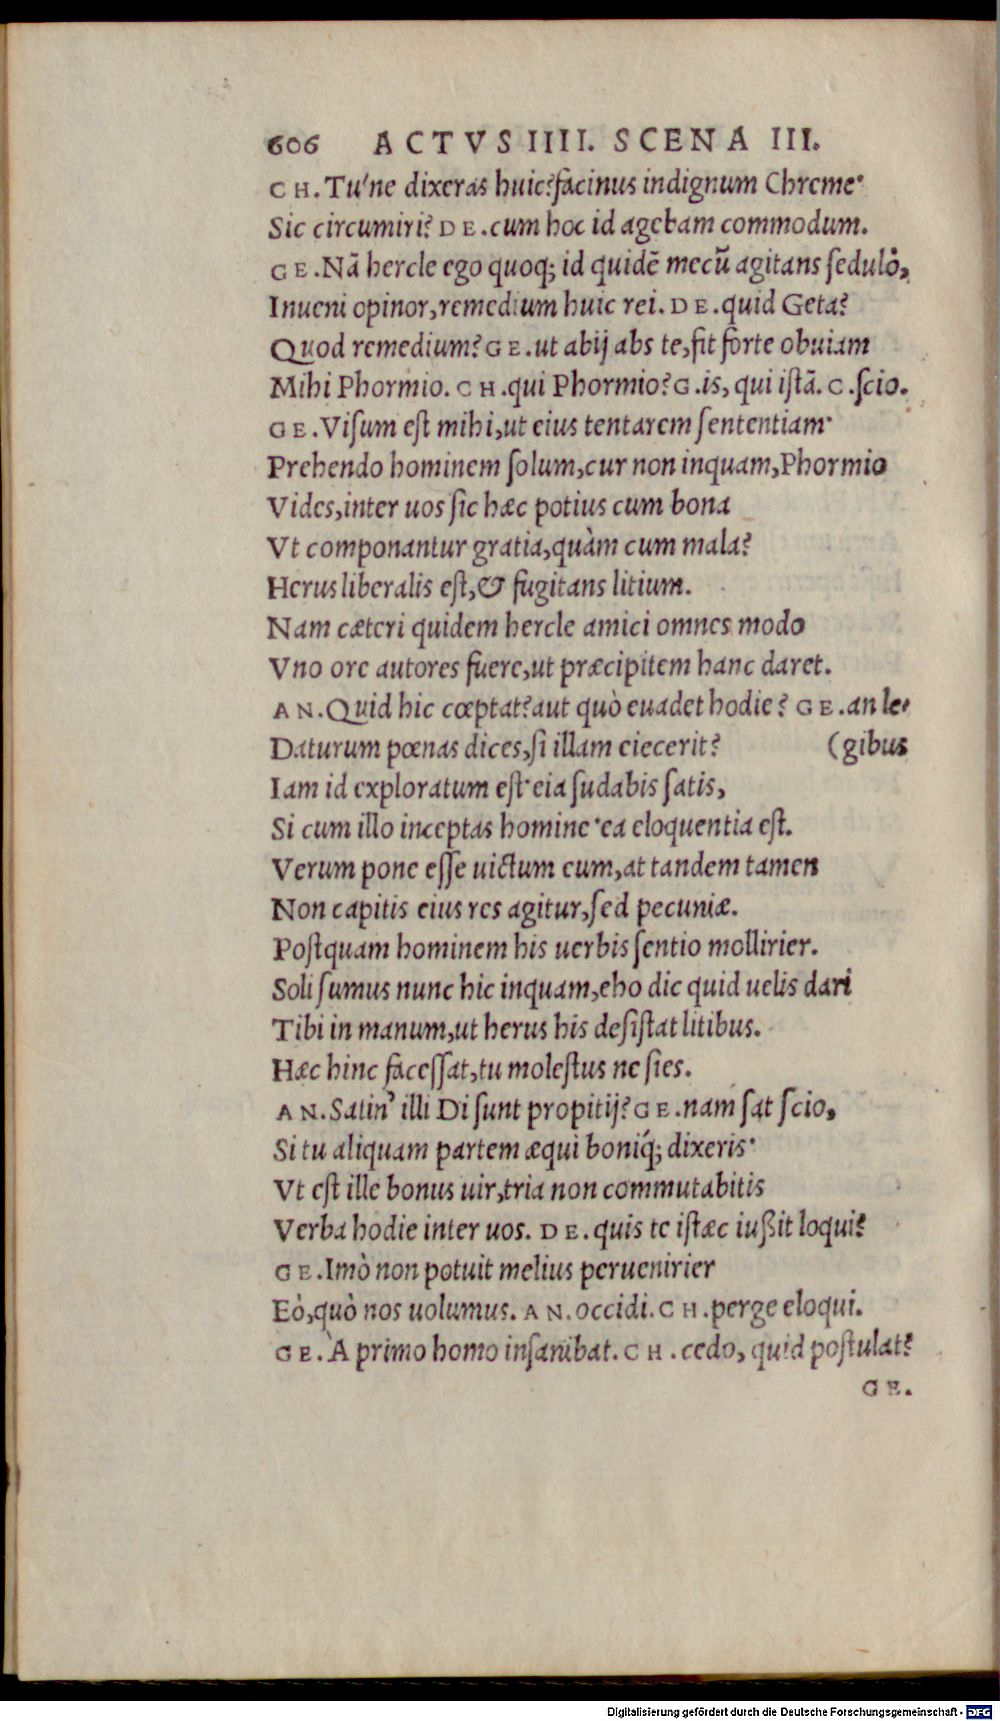 606 ACTVS IIII. SCENA III.
CH. Tu'ne dixeras huic? facinus indignum Chreme·
Sic circumiri? DE. cum hoc id agebam commodum.
GE. Nā hercle ego quoq; id quidē mecū agitans ſedulò,
Inueni opinor, remedium huic rei. DE. quid Geta?
Quod remedium? GE. ut abij abs te, fit forte obuiam
Mihi Phormio. CH. qui Phormio? G. is, qui iſtā. C. ſcio.
GE. Viſum eſt mihi, ut eius tentarem ſententiam·
Prehendo hominem ſolum, cur non inquam, Phormio
Vides, inter uos ſic hæc potius cum bona
Vt componantur gratia, quàm cum mala?
Herus liberalis eſt, & fugitans litium.
Nam cæteri quidem hercle amici omnes modo
Vno ore autores fuere, ut præcipitem hanc daret.
AN. Quid hic cœptat? aut quò euadet hodie? GE. an le-
Daturum pœnas dices, ſi illam eiecerit? (gibus
Iam id exploratum eſt· eia ſudabis ſatis,
Si cum illo inceptas homine· ea eloquentia eſt.
Verum pone eſſe uictum eum, at tandem tamen
Non capitis eius res agitur, ſed pecuniæ.
Poſtquam hominem his uerbis ſentio mollirier.
Soli ſumus nunc hic inquam, eho dic quid uelis dari
Tibi in manum, ut herus his deſiſtat litibus.
Hæc hinc faceſſat, tu moleſtus ne ſies.
AN. Satin' illi Di ſunt propitij? GE. nam ſat ſcio,
Si tu aliquam partem æqui boniq́; dixeris·
Vt eſt ille bonus uir, tria non commutabitis
Verba hodie inter uos. DE. quis te iſtæc iußit loqui?
GE. Imò non potuit melius peruenirier
Eò, quò nos uolumus. AN. occidi. CH. perge eloqui.
GE. À primo homo inſanibat. CH. cedo, quid poſtulat?
GE.
Digitalisierung gefördert durch die Deutsche Forschungsgemeinschaft - DFG